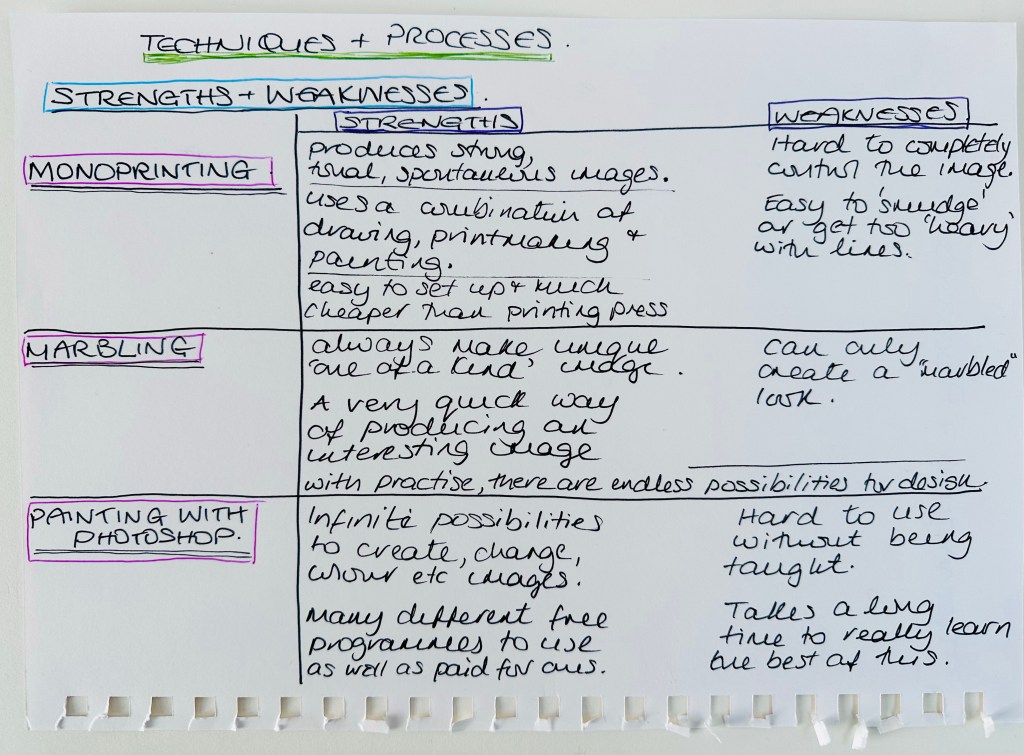 TECHNIQUES + PROCESSES.
STRENGTHS + WEAKNESSES.
STRENGTHS
WEAKNESSES
MONOPRINTING
produces strong,
tonal, spontaneous images.
uses a combination of
drawing, printmaking +
painting.
easy to set up + much
cheaper than printing press
Hard to completely
control the image.
Easy to 'smudge'
or get too 'heavy'
with lines.
MARBLING
always make unique
'one of a kind' image.
A very quick way
of producing an
interesting image
with practise, there are endless possibilities for design.
can only
create a "marbled"
look.
PAINTING WITH
PHOTOSHOP.
Infinite possibilities
to create, change,
colour etc images.
Many different free
programmes to use
as well as paid for ones.
Hard to use
without being
taught.
Takes a long
time to really learn
the best of this.